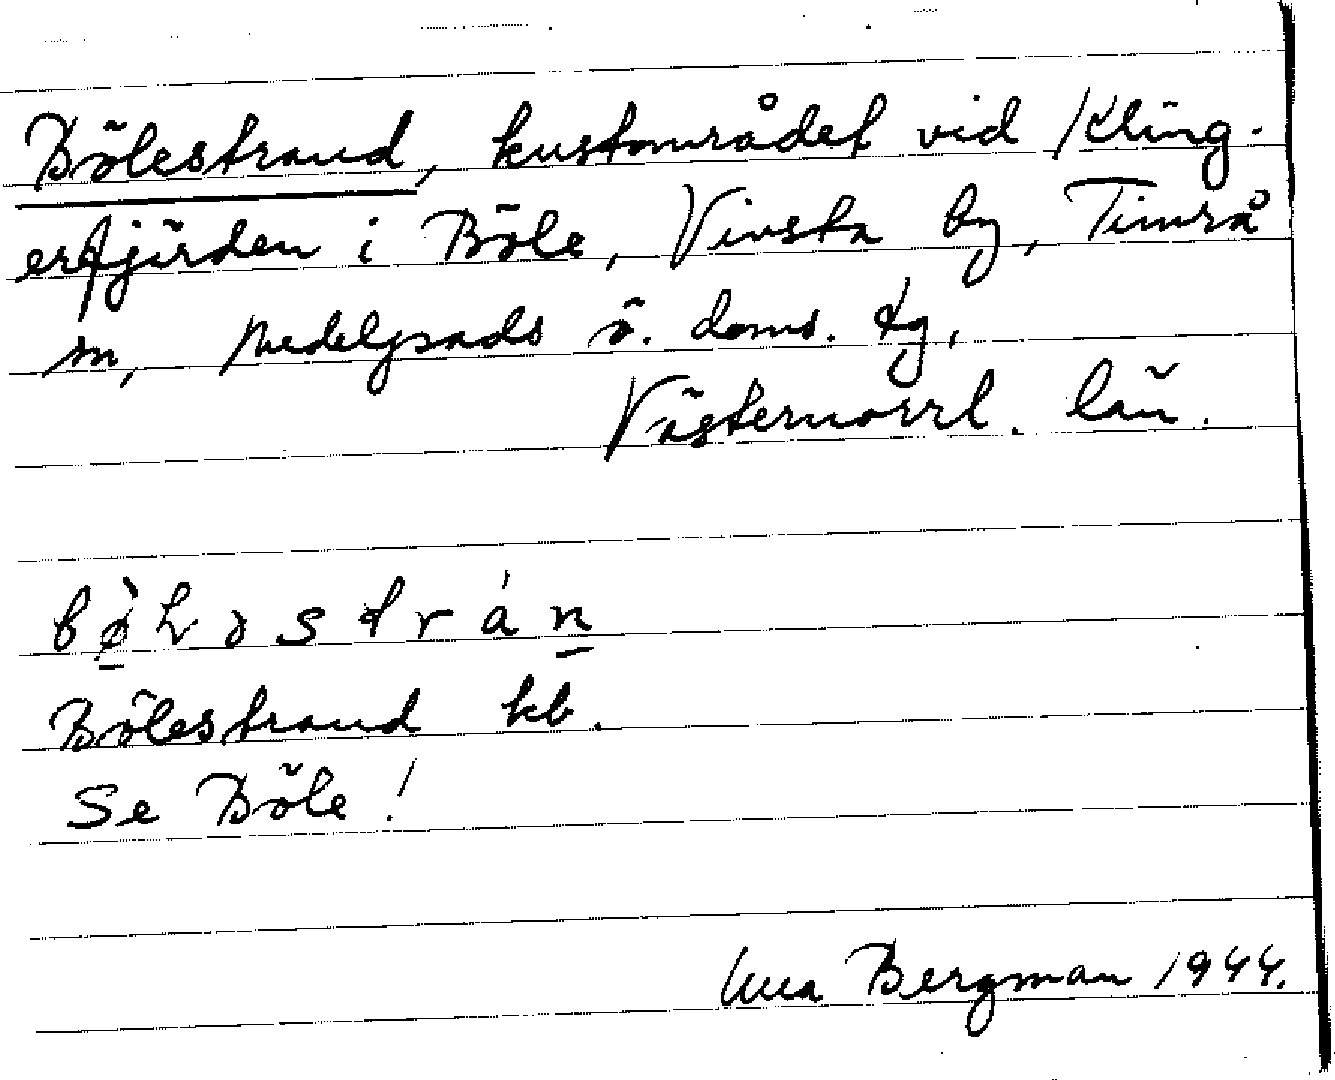 Bölestrand, kustområdet vid Kling-
erfjärden i Böle, Vivsta by, Timrå
sn, Medelpads ö. doms. tg,
Västernorrl. län.
bø̀ɫəstrán
Bölestrand kb.
Se Böle!
Bergman 1944.